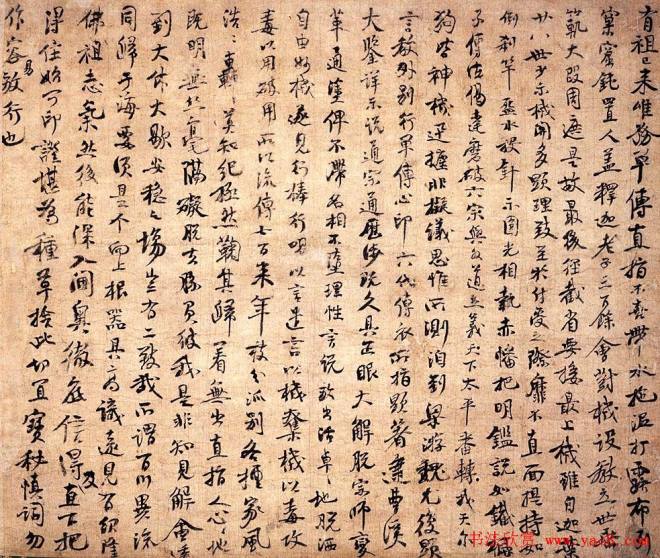 有祖已来唯務單傳直指不喜帶水拖泥打露布列
窠窟鈍置人盖釋迦老子三百餘會對機設教立世垂
範大段周遮是故最後徑截省要接最上機雖自迦葉
廿八世少示機關多顯理致至於付受之際靡不直面提持如
倒刹竿盌水投針示圓光相執赤幡把明鑑說如鐵橛
子傳法偈達磨破六宗與外道立義天下太平番轉我天尔
狗皆神機迅捷非擬議思惟所測洎到梁游魏尤復顯
言教外別行單傳心印六代傳衣所指顯著逮曹溪
大鑒詳示說通宗通歷涉既久具正眼大解脫宗師變
革通塗俾不滯名相不墮理性言說放出活卓々地脫洒
自由妙機遂見行棒行喝以言遣言以機奪機以毒攻
毒以用破用所以流傳七百来年枝分派別各擅家風
浩々轟々莫知紀極然鞠其歸著無出直指人心心地
既明無絲毫隔礙脫去勝負彼我是非知見解會透
到大休大歇安穩之場豈有二致哉所謂百川異流
同歸于海要須是个向上根器具高識遠見有紹隆
佛祖志氣然後能深入閫奧徹底信得及直下把
得住始可印證堪為種草捨此切宜寶秘慎詞勿
作容易放行也
书法欣赏
www.yac8.com